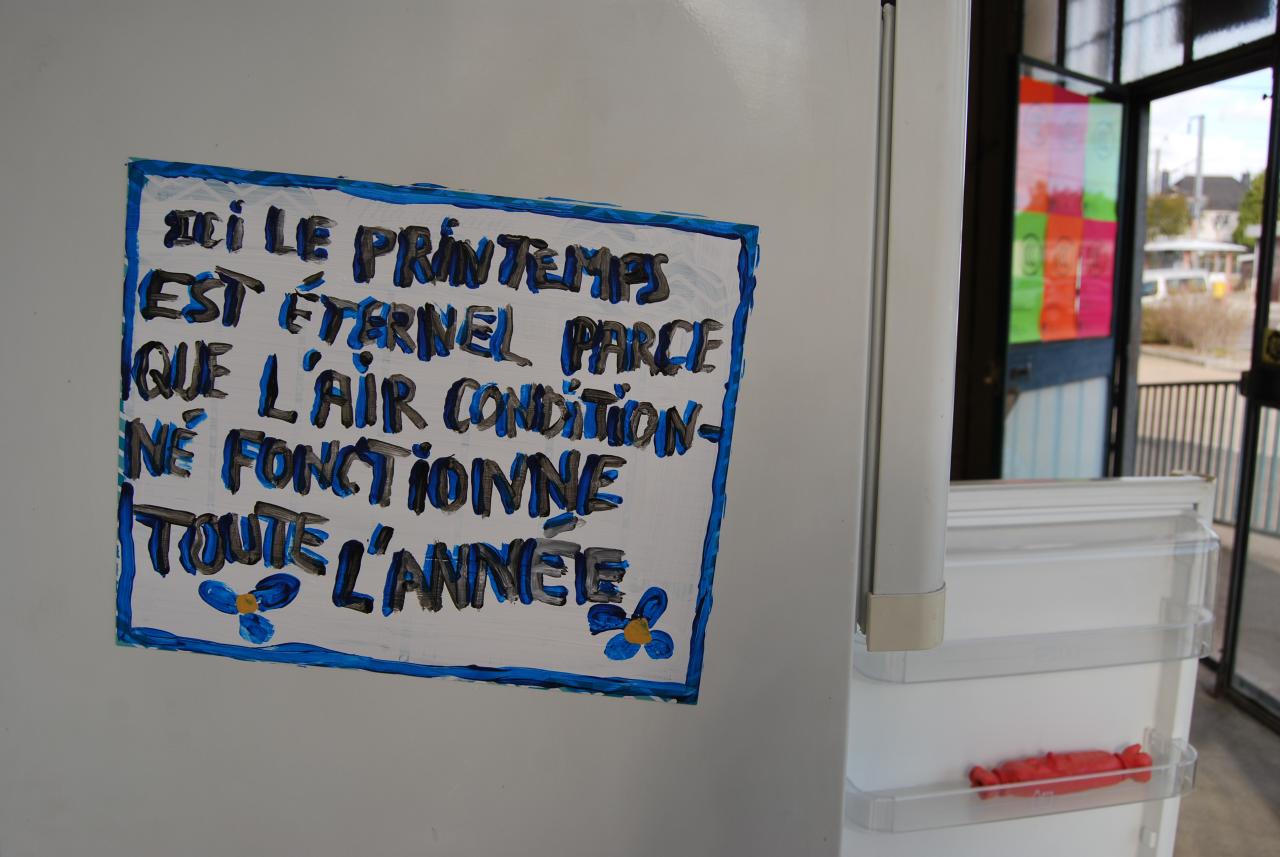 ICi LE PRiNTEMPS
EST ÉTERNEL PARCE
QUE L'AiR CONDiTiON-
NÉ FONCTiONNE
TOUTE L'ANNÉE